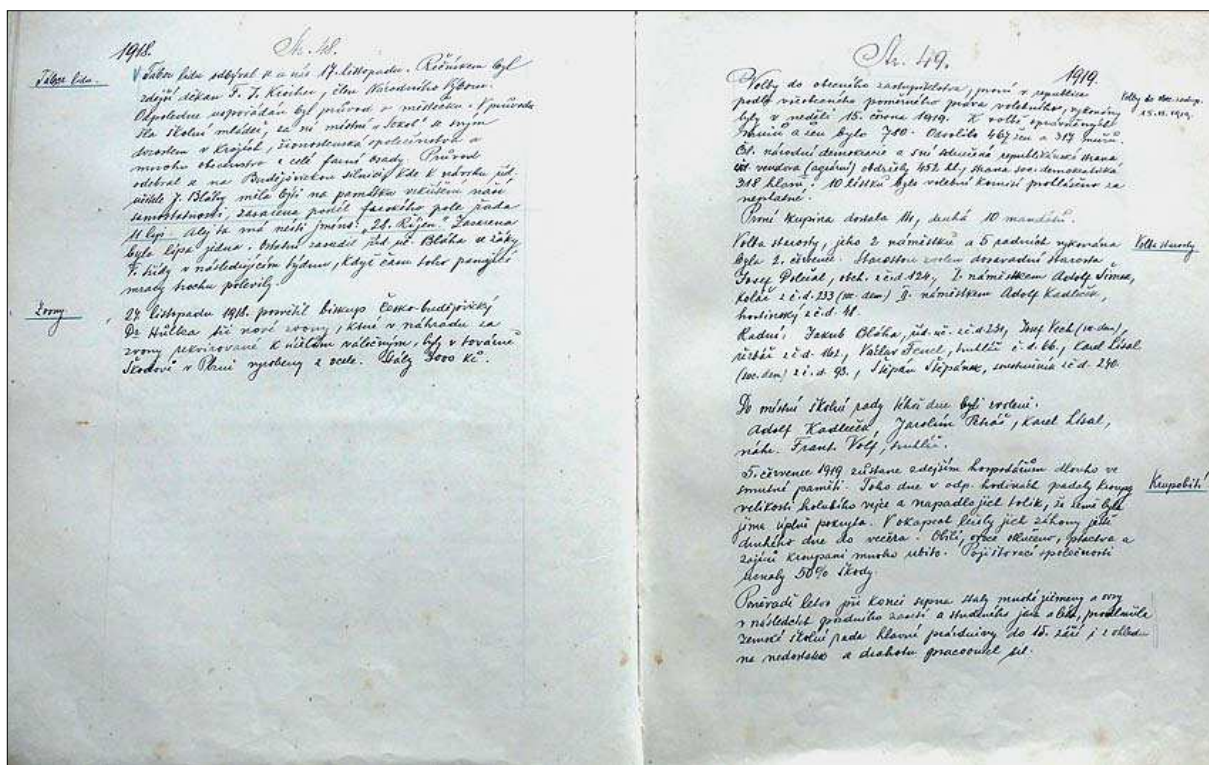 1918.
Str. 48.
Tábor lidu.
Tábor lidu odbýval se u nás 17. listopadu. Řečníkem byl
zdejší děkan F. J. Kroiher, člen Národního Výboru.
Odpoledne uspořádán byl průvod v městečku. V průvodu
šla školní mládež, za ní místní "Sokol" se svým
dorostem v krojích, živnostenská společenstva a
mnoho občanstva z celé farní osady. Průvod
odebral se na Budějovickou silnici, kde k návrhu říd.
učitele J. Bláhy měla býti na památku vzkříšení naší
samostatnosti, zasazena podél farského pole řada
11 lip. Alej ta má nésti jméno: "28. Říjen." Zasazena
byla lípa jedna. Ostatní zasadil říd. uč. Bláha se žáky
V. třídy v následujícím týdnu, když času toho panující
mrazy trochu polevily.
Zvony.
24. listopadu 1918. posvětil biskup Česko-budějovický
Dr. Hůlka tři nové zvony, které v náhradu za
zvony rekvirované k účelům válečným, byly v továrně
Škodově v Plzni vyrobeny z ocele. Stály 3000 Kč.
Str. 49.
1919.
Volby do obec. zastup.
15.VI.1919.
Volby do obecního zastupitelstva, první v republice
podle všeobecného poměrného práva volebního, vykonány
byly v neděli 15. června 1919. K volbě oprávněných
mužů a žen bylo 710. Odvolilo 467 žen a 317 mužů.
Čsl. národní demokracie a s ní sdružená republikánská strana
čsl. venkova (agrární) obdržely 452 hl., strana soc. demokratická
318 hlasů. 10 lístků bylo volební komisí prohlášeno za
neplatné.
První skupina dostala 14, druhá 10 mandátů.
Volba starosty
Volba starosty, jeho 2 náměstků a 5 radních vykonána
byla 2. července. Starostou zvolen dosavadní starosta
Josef Doležal, obch. z č.d. 124, I. náměstkem Adolf Šimek,
kolář z č.d. 233 (soc. dem) II. náměstkem Adolf Kadlečík,
hostinský z č.d. 48.
Radní: Jakub Bláha, říd. uč. z č.d. 231, Josef Vech (soc. dem),
z č.d. 162, Václav truhlář č.d. 66, Karel Lísal
(soc. dem) z č.d. 93., Štěpán Štěpánek, z č.d. 240.
Do místní školní rady téhož dne byli zvoleni.
Adolf Kadlečík, Jarolím Petráš, Karel Lísal,
náhr. Frant. Volf, truhlář.
Krupobití
5. července 1919 zůstane zdejším hospodářům dlouho ve
smutné paměti. Toho dne v odp. hodinách padaly kroupy
velikosti holubího vejce a napadlo jich tolik, že země byla
jimi úplně pokryta. V okapech ležely jich záhony ještě
druhého dne do večera. Obilí, ovoce otlučeno, ptactva a
zajíců kroupami mnoho ubito. Pojišťovací společnosti
uznaly 50% škody
Poněvadž letos při konci srpna stály mnohé ječmeny a ovsy
v následcích pozdního zasetí a studeného jara a léta, prodloužila
zemská školní rada hlavní prázdniny do 15. září i z ohledu
na nedostatek a drahotu pracovních sil.